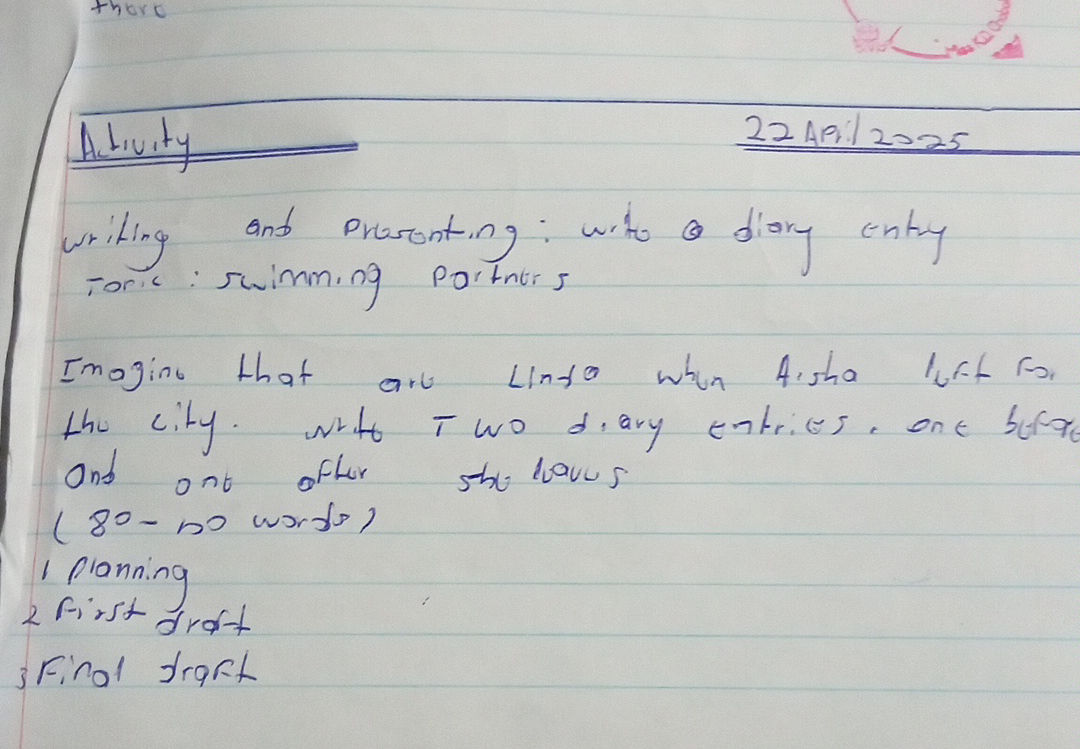 there
Activity 22 April 2025
writing and Presenting: write a diary entry
Topic: swimming Partners
Imagine that are Linda when Aisha left for
the city. write Two diary entries. one before
And one after she leaves
(80- words)
1 Planning
2 First draft
3 Final draft